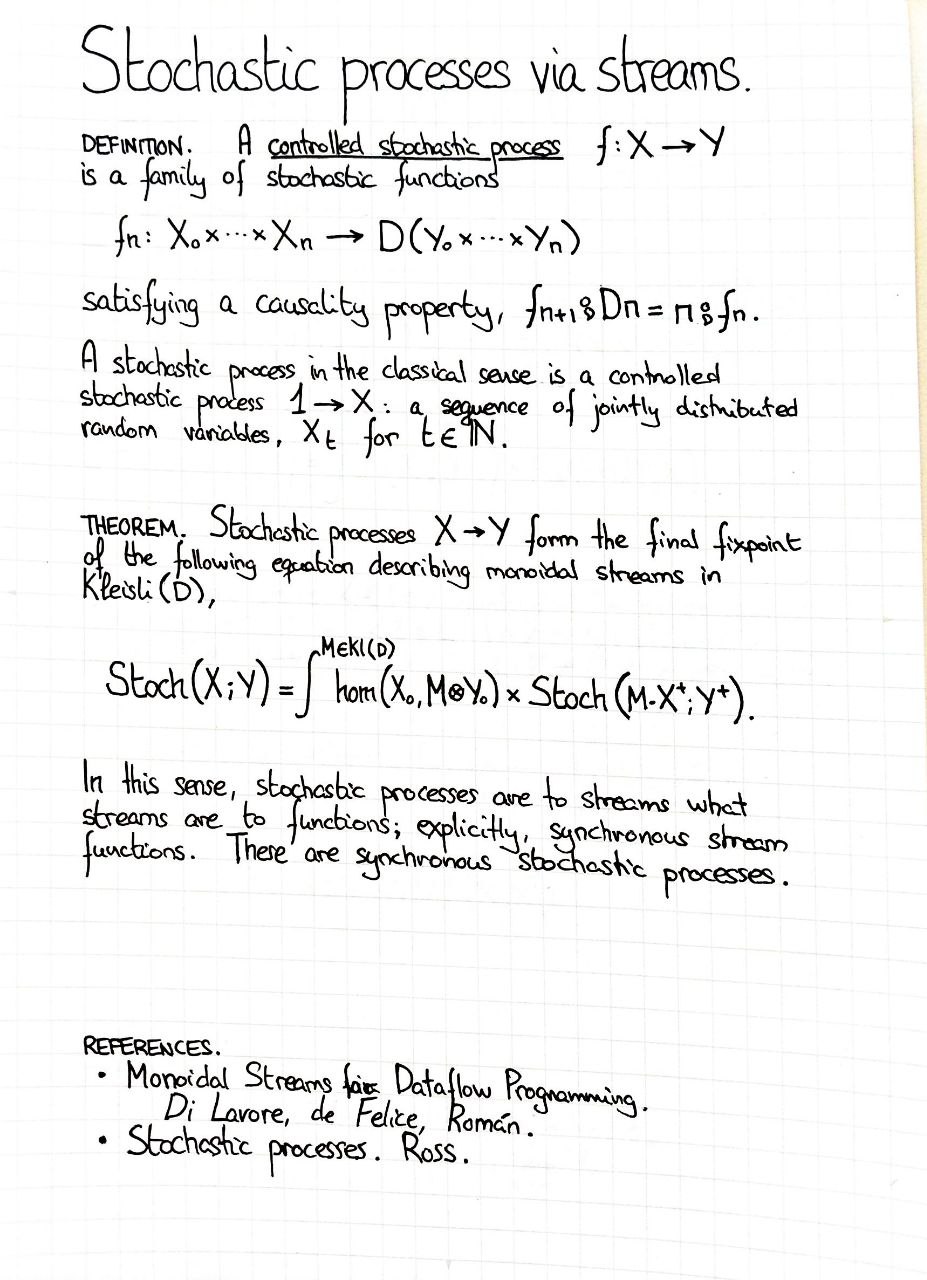 Stochastic processes via streams.
DEFINITION. A controlled stochastic process f: X → Y
is a family of stochastic functions
fn: X₀×···×Xn → D(Y₀×···×Yn)
satisfying a causality property, fn+1⨾Dπ = π⨾fn.
A stochastic process in the classical sense is a controlled
stochastic process 1→X: a sequence of jointly distributed
random variables, Xt for t∈ℕ.
THEOREM. Stochastic processes X→Y form the final fixpoint
of the following equation describing monoidal streams in
Kleisli(D),
Stoch(X;Y) = ∫^{M∈Kl(D)} hom(X₀, M⊗Y₀) × Stoch(M·X⁺;Y⁺).
In this sense, stochastic processes are to streams what
streams are to functions; explicitly, synchronous stream
functions. There are synchronous stochastic processes.
REFERENCES.
• Monoidal Streams for Dataflow Programming.
Di Lavore, de Felice, Román.
• Stochastic processes. Ross.